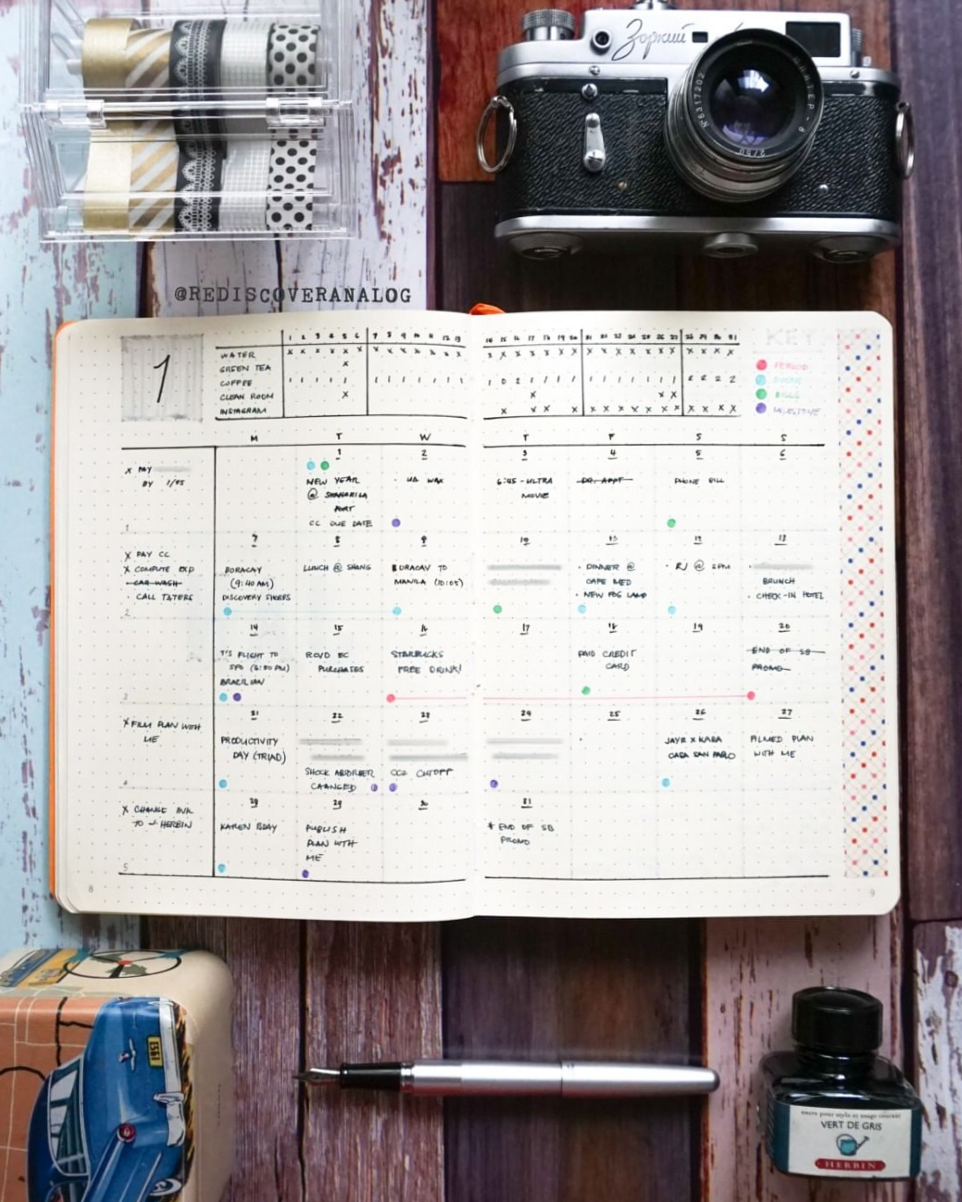 Зоркий
№6317202
2/50
@REDISCOVERANALOG
1
1 2 3 4 5 6 7 8 9 10 11 12 13 14 15 16 17 18 19 20 21 22 23 24 25 26 27 28 29 30 31
WATER
GREEN TEA
COFFEE
CLEAN ROOM
INSTAGRAM
KEY
PERIOD
BILLS
MILESTONE
M T W T F S S
X PAY
BY 1/05
1
1
NEW YEAR
@ SHANGRILA
PORT
CC DUE DATE
2
WAX
3
6:45 - ULTRA
MOVIE
4
DR. APPT
5
PHONE BILL
6
X PAY CC
X COMPUTE EXP
CAR WASH
CALL TATERS
2
7
BORACAY
(9:40 AM)
DISCOVERY SHORES
8
LUNCH @ SHANG
9
BORACAY TO
MANILA (10:05)
10
11
DINNER @
CAFE MED
NEW POS LAMP
12
RJ @ 2PM
13
BRUNCH
CHECK-IN HOTEL
3
14
T'S FLIGHT TO
SFO
BRAZILIAN
15
RCVD EC
PURCHASES
16
STARBUCKS
FREE DRINK!
17
18
PAID CREDIT
CARD
19
20
END OF SB
PROMO
X FILM PLAN WITH
ME
4
21
PRODUCTIVITY
DAY (TRIAD)
22
SHOCK ABSORBER
CHANGED
23
CUTOFF
24
25
26
JAYR X KARA
CASA SAN PABLO
27
FILMED PLAN
WITH ME
X CHANGE INK
TO J HERBIN
5
29
KAREN BDAY
29
PUBLISH
PLAN WITH
ME
30
31
* END OF SB
PROMO
8
9
1953
encre pour stylo et usage courant
VERT DE GRIS
HERBIN